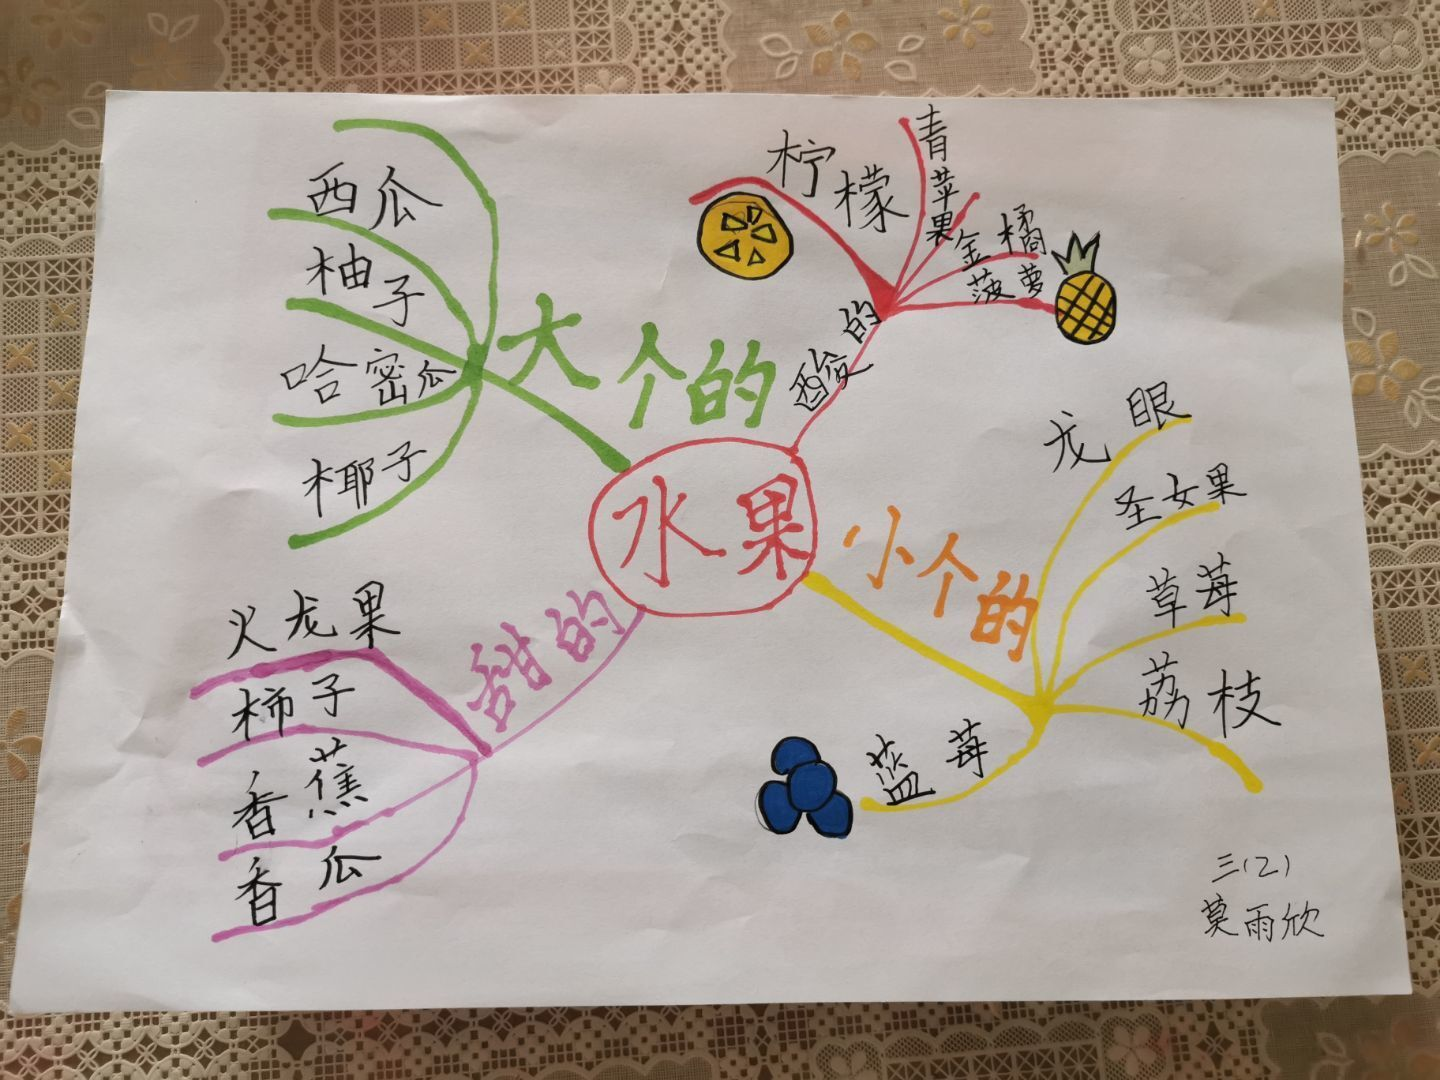 水果
大个的
西瓜
柚子
哈密瓜
椰子
酸的
柠檬
青苹果
金橘
菠萝
小个的
龙眼
圣女果
草莓
荔枝
蓝莓
甜的
火龙果
柿子
香蕉
香瓜
三(2)
莫雨欣